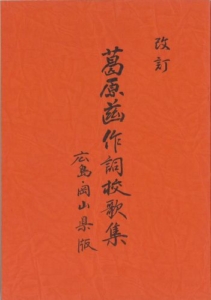 改訂
葛原𦱳作詞校歌集
広島・岡山県版